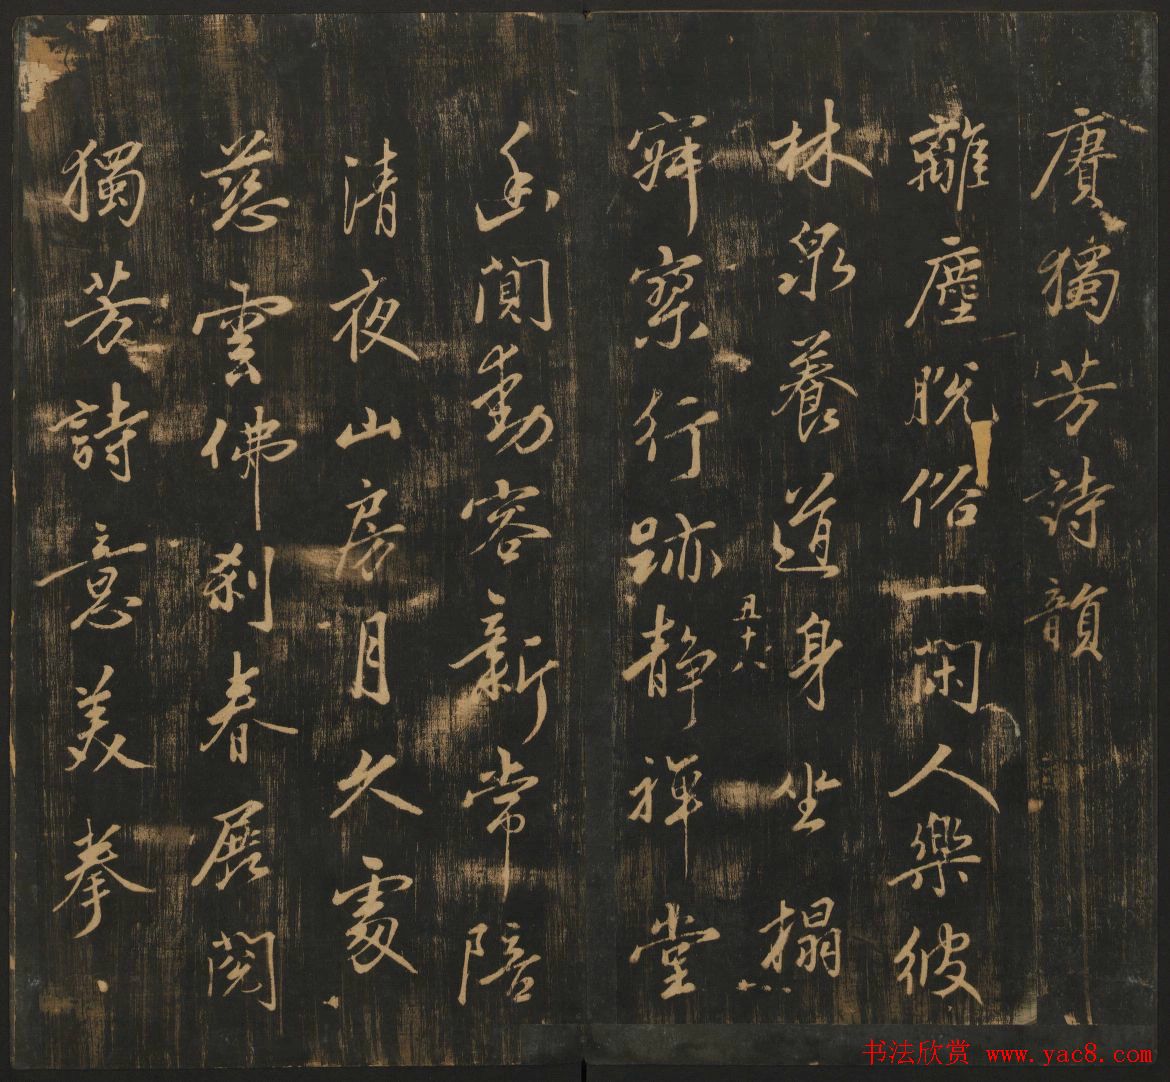 賡獨芳詩韻
離塵脫俗一閑人樂彼
林泉養道身坐榻
丑十八
寂寥行跡静禪堂
幽動容新常陪
清夜山房月久處
慈雲佛刹春展閱
獨芳詩意美拳
书法欣赏 www.yac8.com